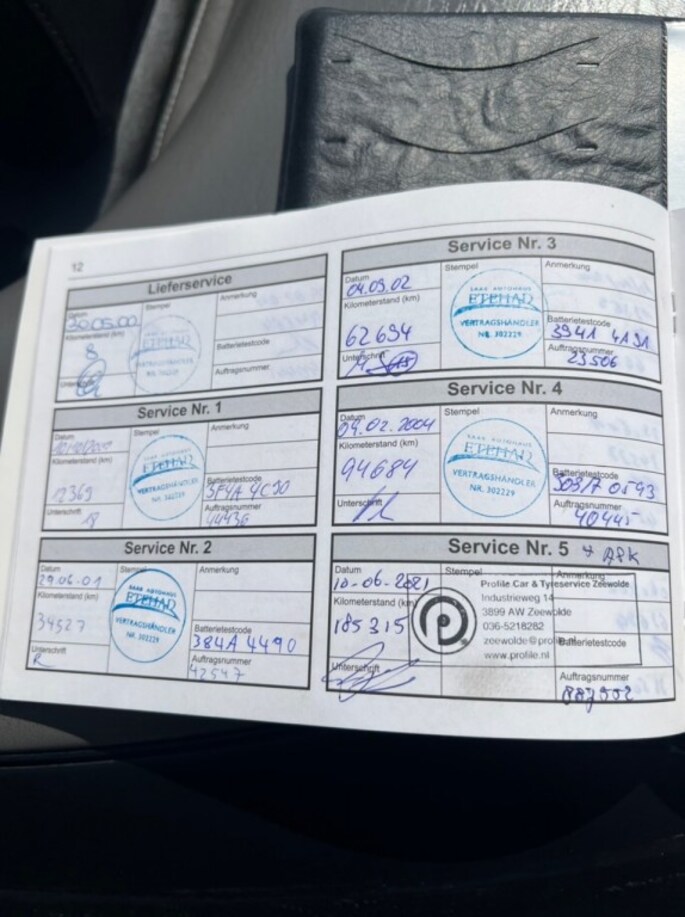 12
Lieferservice
Datum
30.05.00
Stempel
Anmerkung
Kilometerstand (km)
8
SAAB AUTOHAUS
ETEHAD
VERTRAGSHÄNDLER
NR. 302229
Batterietestcode
Unterschrift
Auftragsnummer
Service Nr. 1
Datum
Stempel
Anmerkung
Kilometerstand (km)
12369
SAAB AUTOHAUS
ETEHAD
VERTRAGSHÄNDLER
NR. 302229
Batterietestcode
Unterschrift
Auftragsnummer
44436
Service Nr. 2
Datum
29.06.01
Stempel
Anmerkung
Kilometerstand (km)
34527
SAAB AUTOHAUS
ETEHAD
VERTRAGSHÄNDLER
NR. 302229
Batterietestcode
384A 4490
Unterschrift
Auftragsnummer
42547
Service Nr. 3
Datum
04.09.02
Stempel
Anmerkung
Kilometerstand (km)
62694
SAAB AUTOHAUS
ETEHAD
VERTRAGSHÄNDLER
NR. 302229
Batterietestcode
Unterschrift
Auftragsnummer
23506
Service Nr. 4
Datum
09.02.2004
Stempel
Anmerkung
Kilometerstand (km)
94684
SAAB AUTOHAUS
ETEHAD
VERTRAGSHÄNDLER
NR. 302229
Batterietestcode
Unterschrift
Auftragsnummer
40445
Service Nr. 5 + APK
Datum
10-06-2021
Stempel
Anmerkung
Kilometerstand (km)
185315
Profile Car & Tyreservice Zeewolde
Industrieweg 14
3899 AW Zeewolde
036-5218282
www.profile.nl
Batterietestcode
Unterschrift
Auftragsnummer